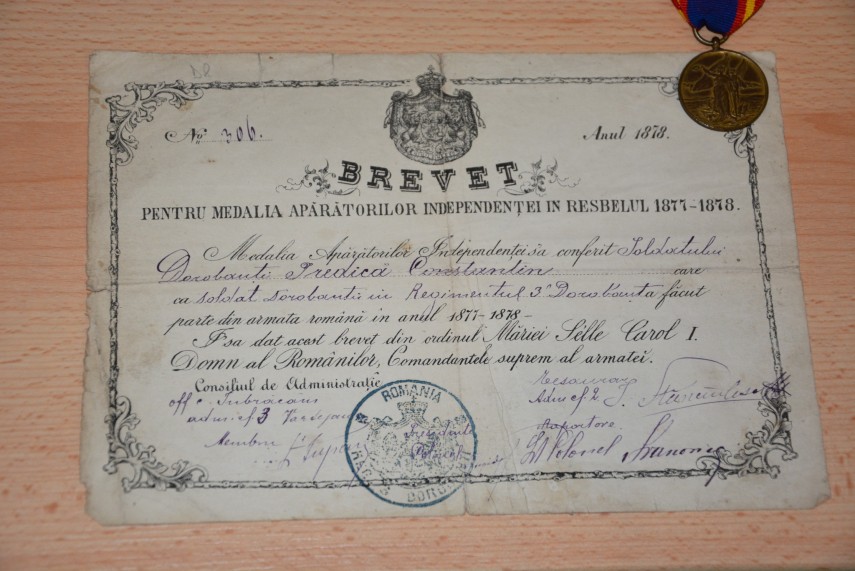 No 306.
Anul 1878.
BREVET
PENTRU MEDALIA APĂRĂTORILOR INDEPENDENȚEI IN RESBELUL 1877-1878.
Medalia Apărătorilor Independenței s'a conferit Soldatului
Dorobanti Predica Constantin care
ca soldat dorobantu in Regimentul 3 Dorobanta făcut
parte din armata română în anul 1877-1878-
I s'a dat acest brevet din ordinul Măriei Sélle Carol I.
Domn al Românilor, Comandantele suprem al armatei.
Consiliul de Administrație
Adus cf 2
adus cf 3
Membru
Raportore
Lt Colonel
ROMANIA